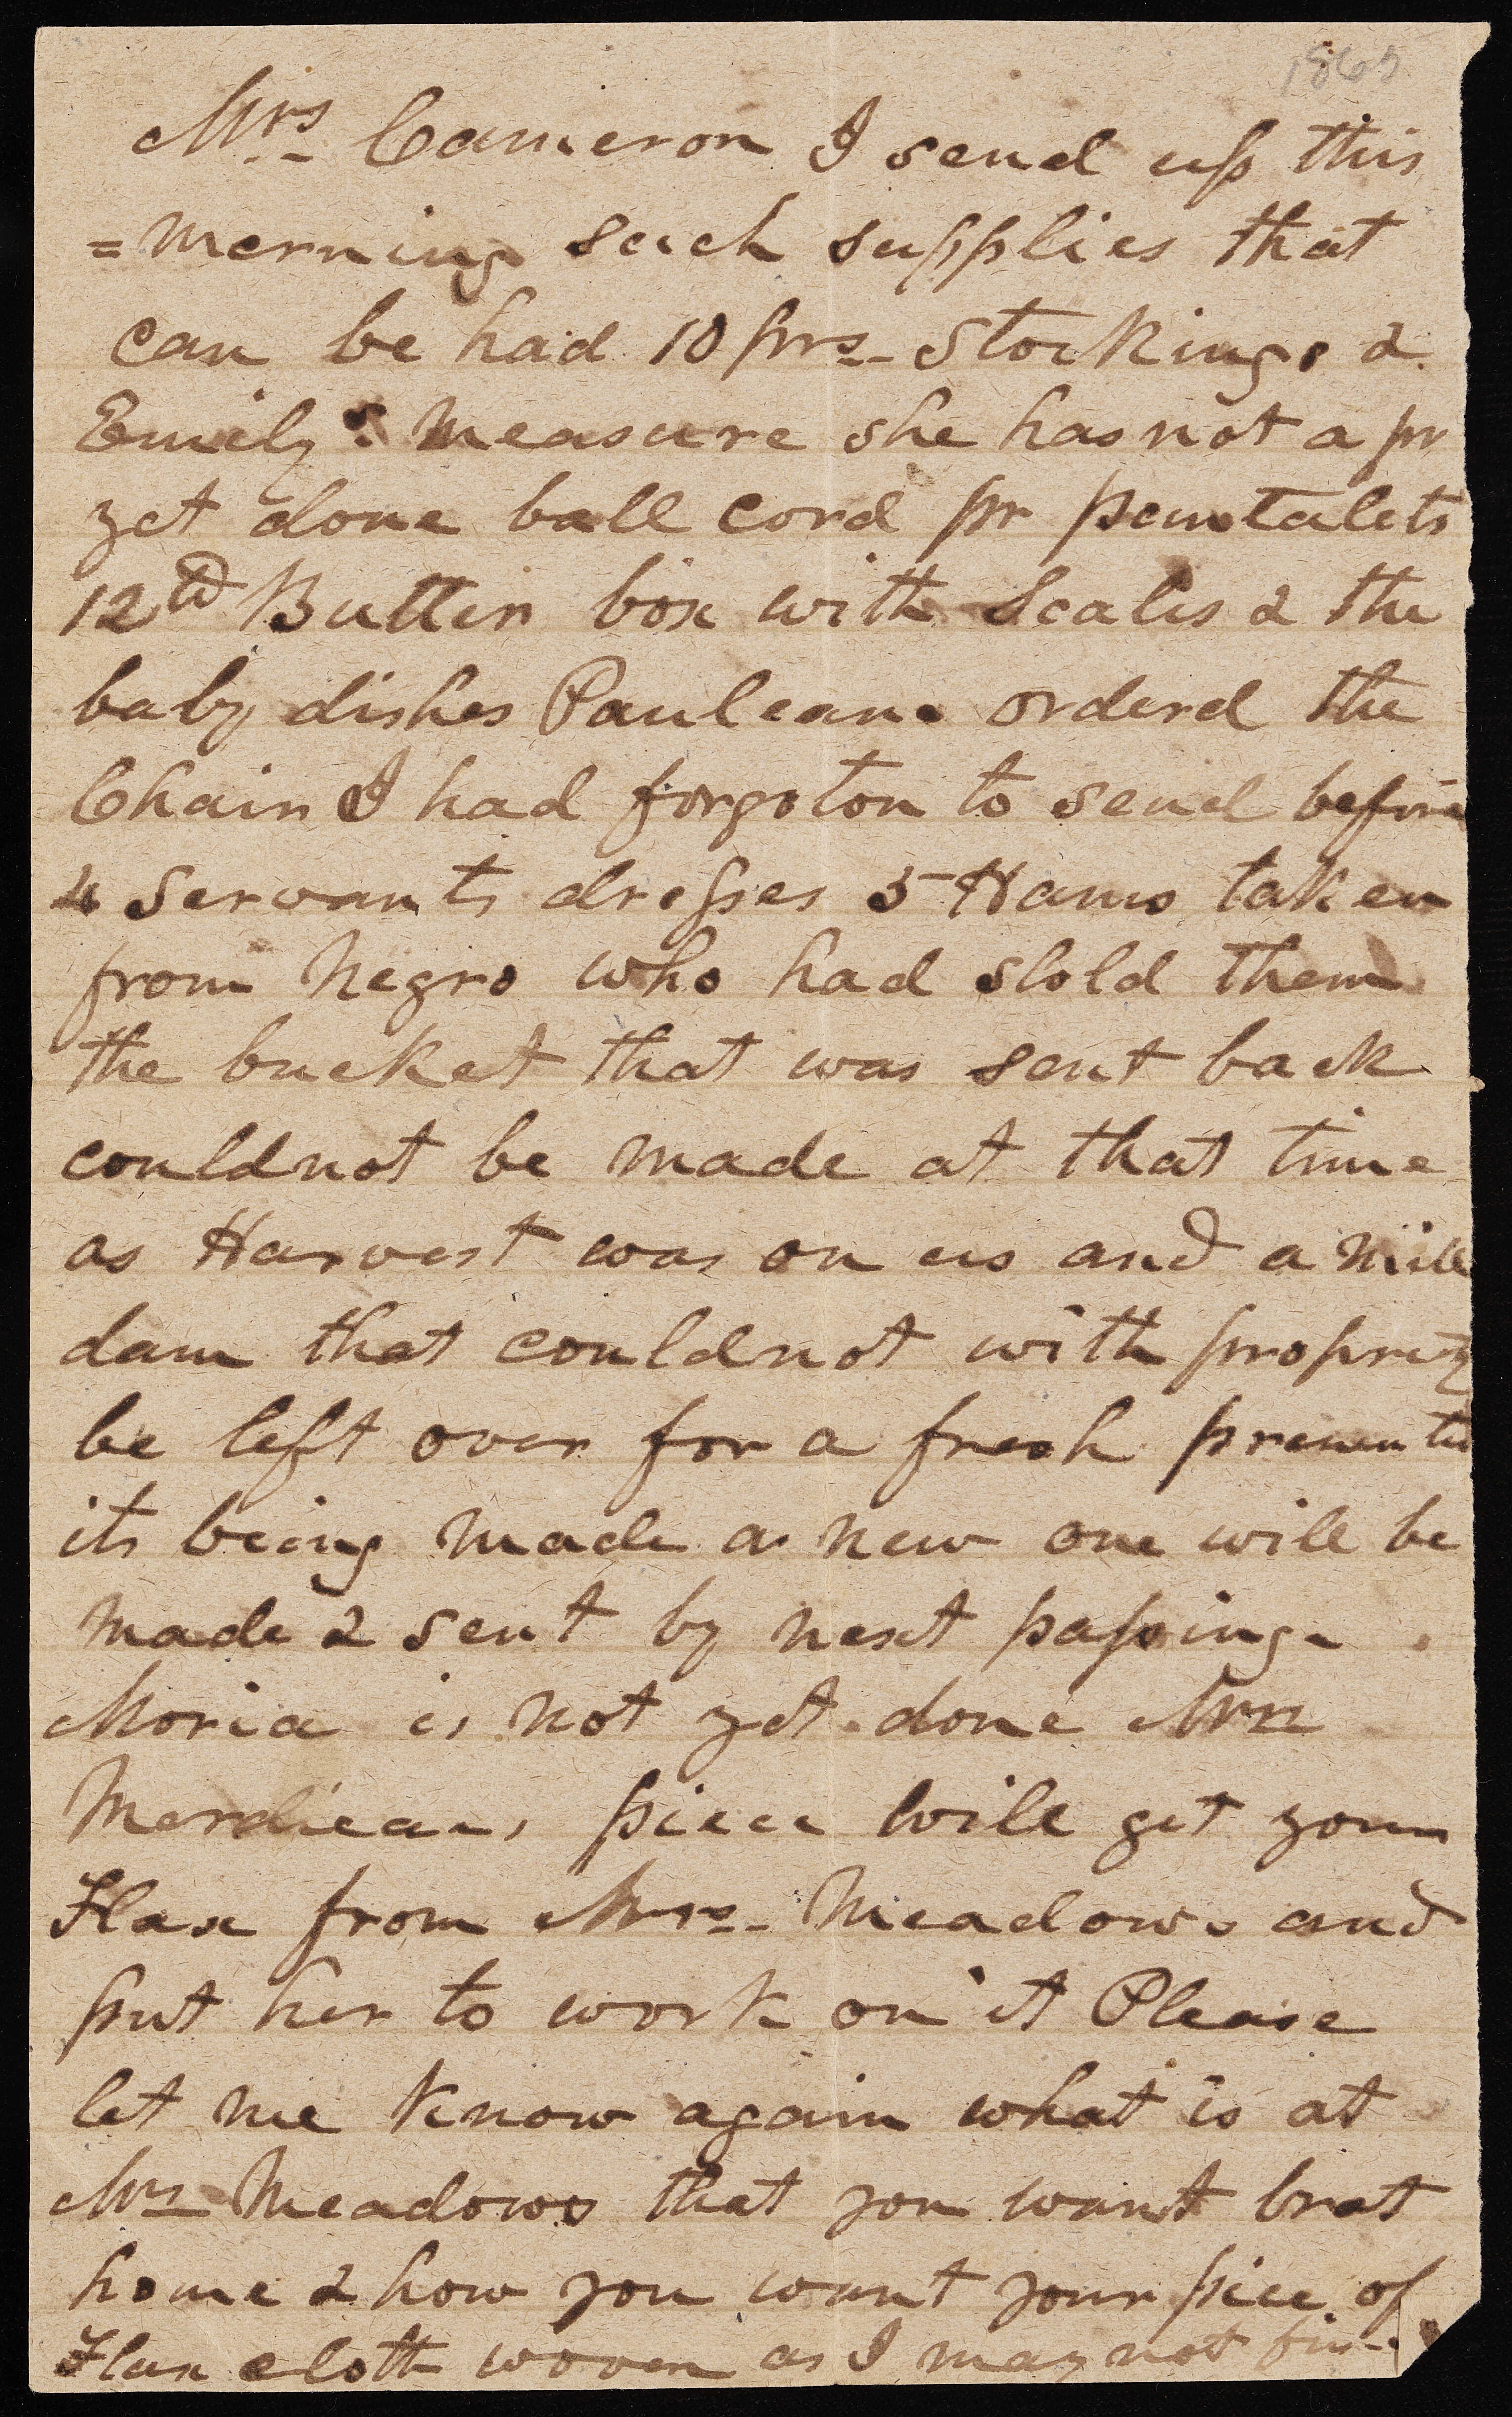 1865
Mrs Cameron I send up this
=morning such supplies that
can be had 10 prs Stockings &
Emily's measure she has not a pr
yet done ball cord pr pantalets
12 lb Butter box with Scales & the
baby dishes Paulean ordered the
Chain I had forgoton to send before
4 Servants dresses 5 Hams taken
from Negro who had stold them
the bucket that was sent back
couldnot be made at that time
as Harvest was on us and a mill
dam that couldnot with propriety
be left over for a fresh prevented
its being made a new one will be
made & sent by next passing
Moria is not yet done Mrs
piece will get your
Flax from Mrs Meadows and
put her to work on it Please
let me know again what is at
Mrs Meadows that you want brat
home & how you want your piece of
Flax cloth woven as I may not